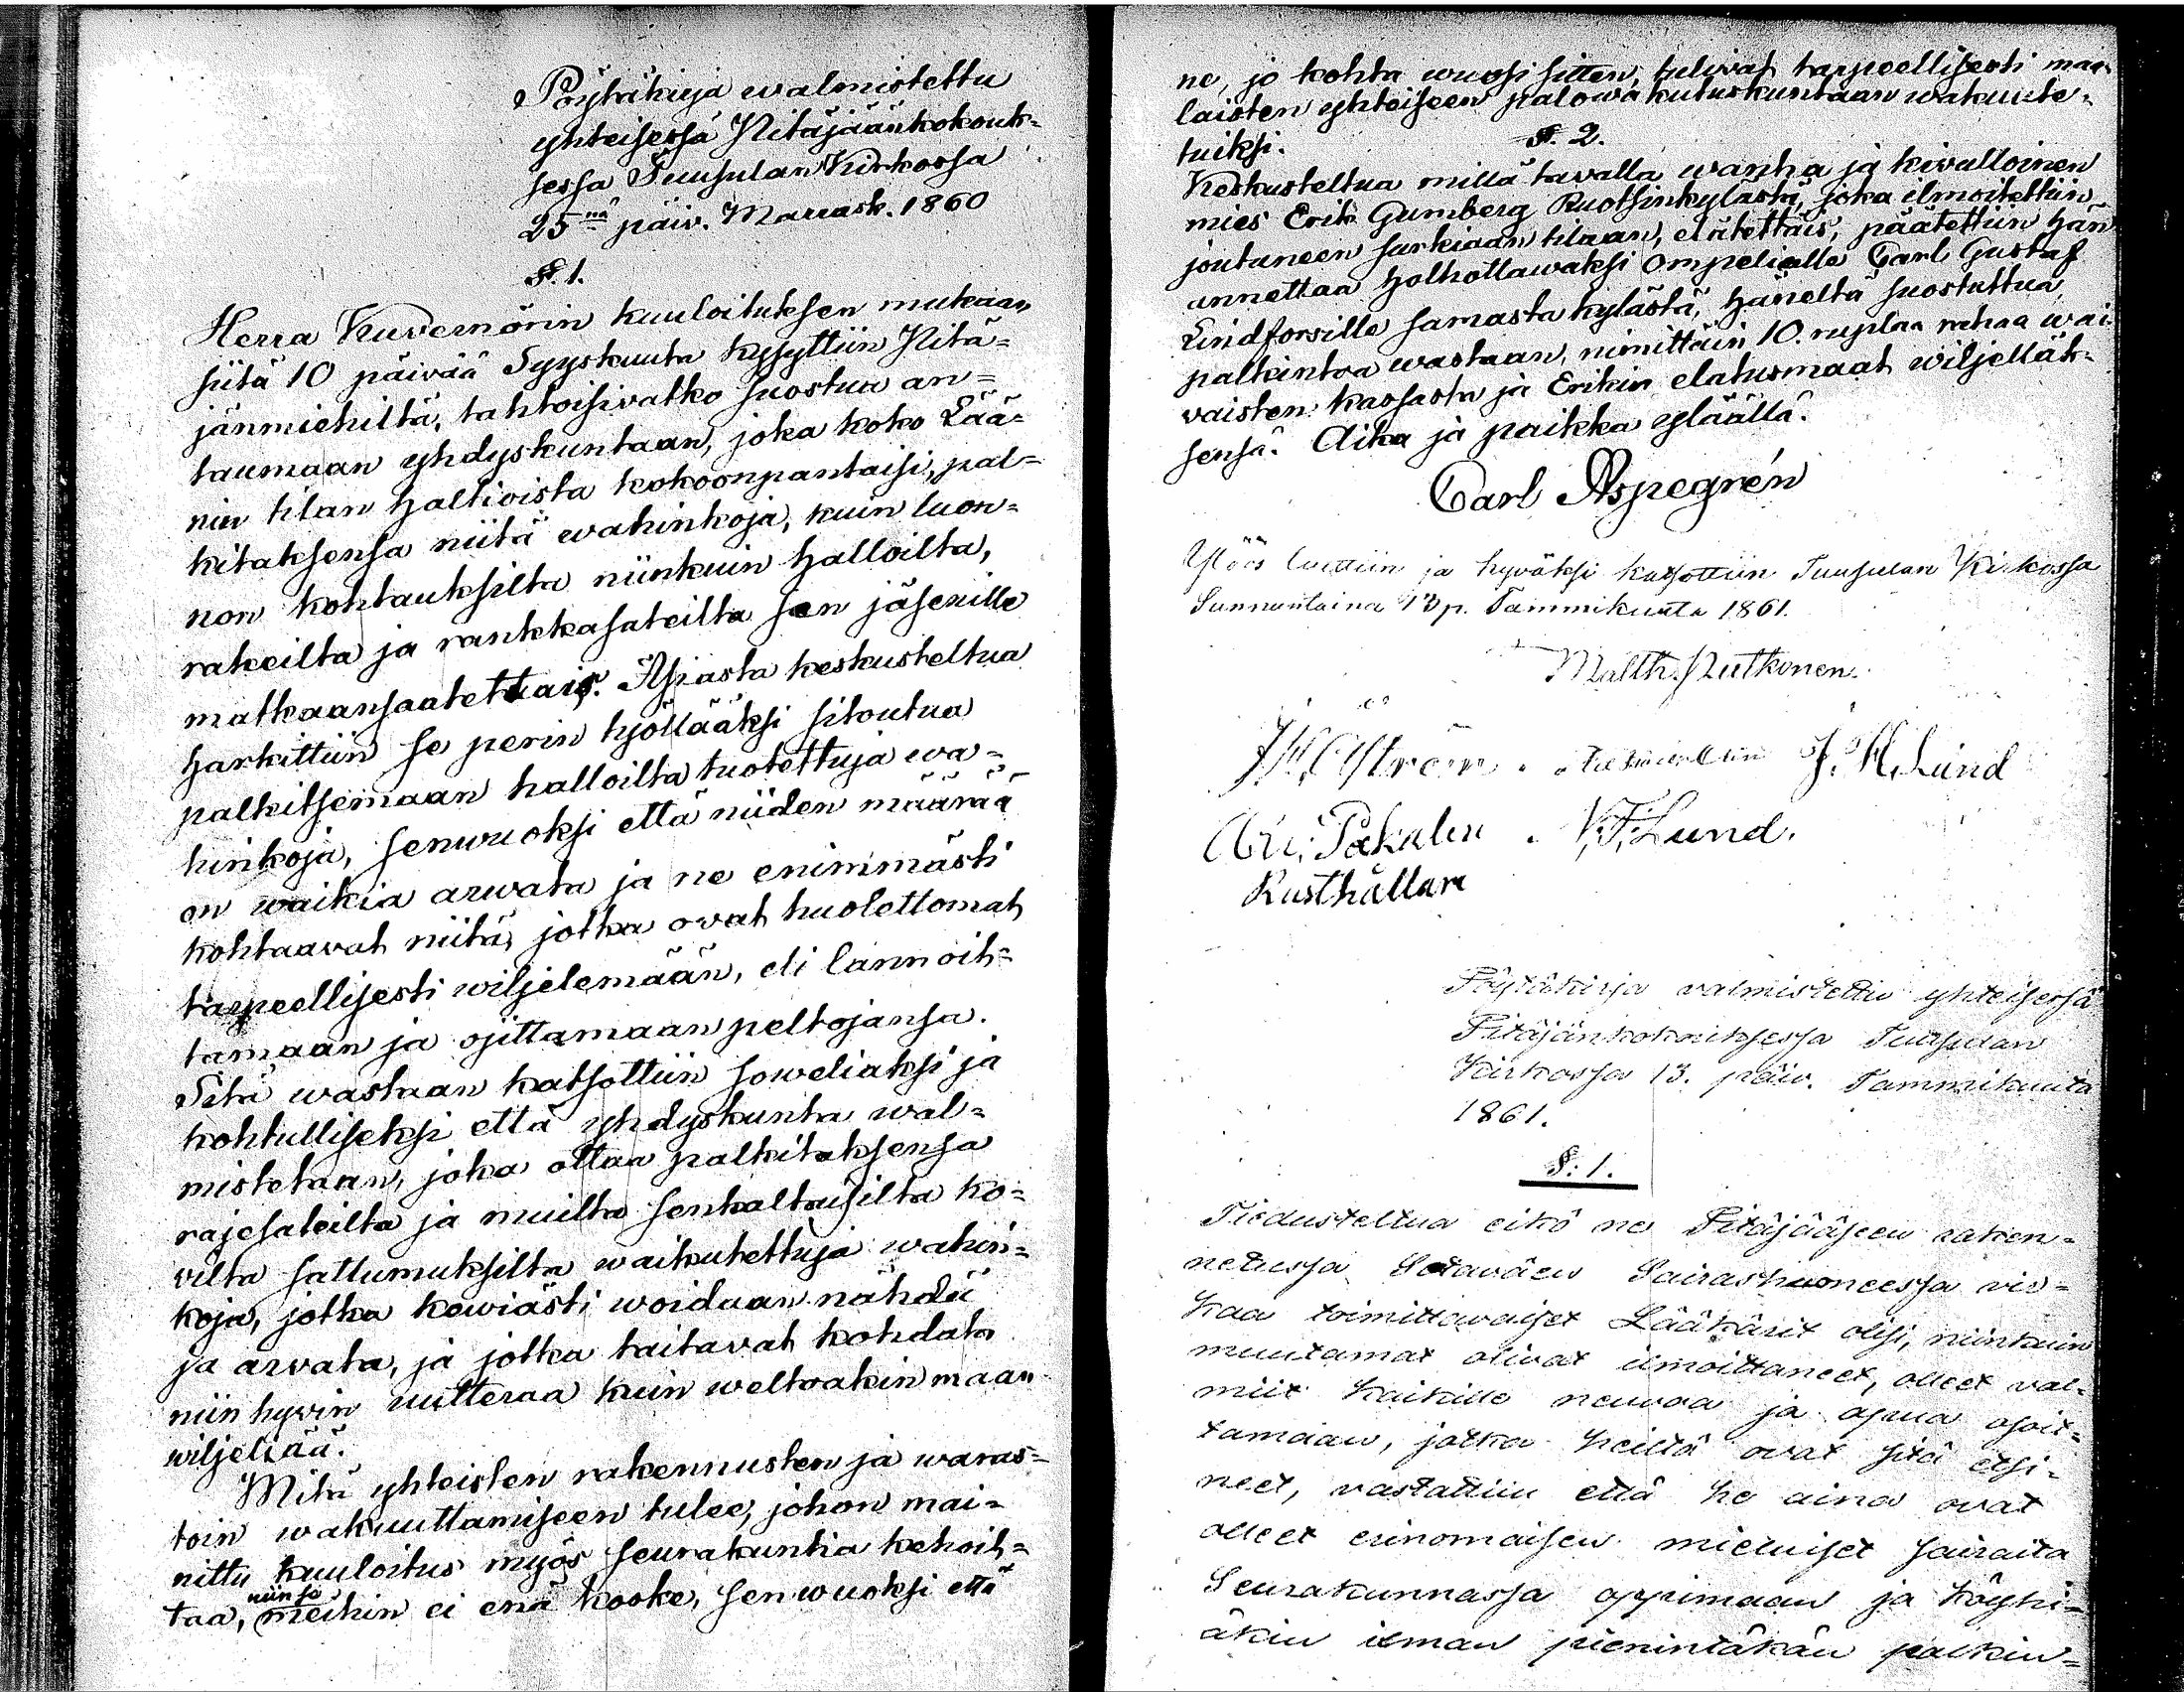 Pöytäkirja walmistettu
yhteisessä Pitäjäänkokouk=
sessa Tuusulan Kirkossa
25nä päiv. Marrask. 1860
§. 1.
Herra Kuvernörin kuuloituksen mukaan
siitä 10 päivää Syyskuuta kysyttiin Pitä=
jänmiehiltä, tahtoisivatko suostua an=
taumaan yhdyskuntaan, joka koko Lää=
nin tilan haltioista kokoonpantaisi, pal=
kitaksensa niitä wahinkoja, kuin luon=
non kohtauksilta niinkuin halloilta,
rakeilta ja rankkasateilta sen jäsenille
matkaansaatettais. Asiasta keskusteltua
harkittiin se perin työllääksi sitoutua
palkitsemaan halloilta tuotettuja wa=
hinkoja, senwuoksi että niiden määrää
on waikia arwata ja ne enimmästi
kohtaavat niitä, jotka ovat huolettomat
tarpeellisesti wiljelemään, eli lannoit=
tamaan ja ojittamaan peltojansa.
Sitä wastaan katsottiin soweliaksi ja
kohtulliseksi että yhdyskunta wal=
mistetaan, joka ottaa palkitaksensa
rajesateilta ja muilta senkaltaisilta ko=
vilta sattumuksilta waikutettuja wahin=
koja, jotka kewiästi woidaan nähdä
ja arvata, ja jotka taitavat kohdata
niin hywin uutteraa kuin weltoakin maan
wiljeliää.
Mitä yhteisten rakennusten ja waras=
toin wakuuttamiseen tulee, johon mai=
nittu kuuloitus myös seurakuntia kehoit=
niin se
taa, meihin ei enä koske, sen wuoksi että
ne, jo kohta wuosi sitten, tulivat tarpeellisesti maa=
laisten yhteiseen palowakuutuskuntaan wakuute=
tuiksi.
§. 2.
Keskusteltua millä tavalla wanha ja kivulloinen
mies Erik Gumberg Ruotsinkylästä, joka ilmoitettiin
joutuneen surkiaan tilaan, elätettäis, päätettiin hän
annettaa holhottawaksi Ompelialle Carl Gustaf
Lindforsille samasta kylästä, häneltä suostuttua
palkintoa wastaan, nimittäin 10. ruplaa rahaa wai=
vaisten kassasta ja Erikin elatusmaat wiljelläk=
sensä. Aika ja paikka ylläällä.
Carl Aspegrén
Ylös luettiin ja hyväksi katsottiin Tuusulan Kirkossa
Sunnuntaina 13 p. Tammikuuta 1861.
Matth. Putkonen.
J. H. Lund
N. F. Lund.
Rusthållare
Pöytäkirja valmistettu yhteisessä
Pitäjänkokouksessa Tuusulan
Kirkossa 13. päiv. Tammikuuta
1861.
§: 1.
Tiedusteltua eikö ne Pitäjääseen raken=
netussa Sotaväen Sairashuoneessa vir=
kaa toimittavaiset Lääkärit olisi, niinkuin
muutamat olivat ilmoittaneet, olleet val=
miit kaikille neuvoa ja apua osoit=
tamaan, jotka heiltä ovat sitä etsi=
neet, vastattiin että he aina ovat
olleet erinomaisen mieluiset sairaita
Seurakunnassa oppimaan ja köyhi=
äkin ilman pienintäkän palkin=